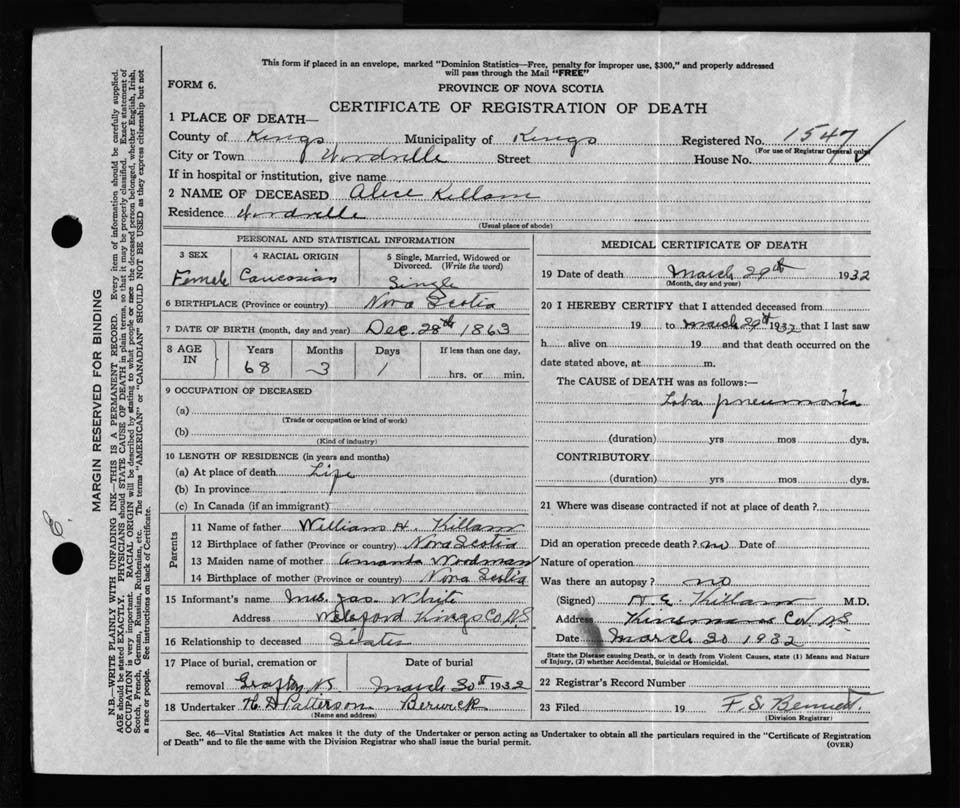 This form if placed in an envelope, marked "Dominion Statistics—Free, penalty for improper use, $300," and properly addressed
will pass through the Mail "FREE"
FORM 6.
PROVINCE OF NOVA SCOTIA
CERTIFICATE OF REGISTRATION OF DEATH
1 PLACE OF DEATH—
County of Kings Municipality of Kings Registered No. 1547
(For use of Registrar General only)
City or Town Woodville Street House No.
If in hospital or institution, give name
2 NAME OF DECEASED Alice Killam
Residence Woodville
(Usual place of abode)
PERSONAL AND STATISTICAL INFORMATION
3 SEX 4 RACIAL ORIGIN 5 Single, Married, Widowed or
Divorced. (Write the word)
Female Caucasian Single
6 BIRTHPLACE (Province or country) Nova Scotia
7 DATE OF BIRTH (month, day and year) Dec. 28th 1863
8 AGE IN Years Months Days If less than one day,
68 3 1 hrs. or min.
9 OCCUPATION OF DECEASED
(a)
(Trade or occupation or kind of work)
(b)
(Kind of industry)
10 LENGTH OF RESIDENCE (in years and months)
(a) At place of death Life
(b) In province
(c) In Canada (if an immigrant)
Parents
11 Name of father William H. Killam
12 Birthplace of father (Province or country) Nova Scotia
13 Maiden name of mother Amanda Woodman
14 Birthplace of mother (Province or country) Nova Scotia
15 Informant's name Mrs. Jas. White
Address Kings Co., N.S.
16 Relationship to deceased Sister
17 Place of burial, cremation or Date of burial
removal Grafton N.S March 30th 1932
18 Undertaker Patterson Berwick
(Name and address)
MEDICAL CERTIFICATE OF DEATH
19 Date of death March 29th 1932
(Month, day and year)
20 I HEREBY CERTIFY that I attended deceased from
19 to March 29th 1932 that I last saw
h alive on 19 and that death occurred on the
date stated above, at m.
The CAUSE of DEATH was as follows:—
Lobar pneumonia
(duration) yrs mos dys.
CONTRIBUTORY
(duration) yrs mos dys.
21 Where was disease contracted if not at place of death?
Did an operation precede death? no Date of
Nature of operation
Was there an autopsy? no
(Signed) Killam M.D.
Address N.S.
Date March 30 1932
State the Disease causing Death, or in death from Violent Causes, state (1) Means and Nature
of Injury, (2) whether Accidental, Suicidal or Homicidal.
22 Registrar's Record Number
23 Filed 19 F. S. Bennett.
(Division Registrar)
Sec. 46—Vital Statistics Act makes it the duty of the Undertaker or person acting as Undertaker to obtain all the particulars required in the "Certificate of Registration
of Death" and to file the same with the Division Registrar who shall issue the burial permit.
(OVER)
MARGIN RESERVED FOR BINDING
N.B.—WRITE PLAINLY WITH UNFADING INK—THIS IS A PERMANENT RECORD. Every item of information should be carefully supplied.
AGE should be stated EXACTLY. PHYSICIANS should STATE CAUSE OF DEATH in plain terms, so that it may be properly classified. Exact statement of
OCCUPATION is very important. RACIAL ORIGIN will be described by stating to what people or race the deceased person belonged, whether English, Irish,
Scotch, French, German, Russian, Ruthenian, etc. The terms "AMERICAN" or "CANADIAN" SHOULD NOT BE USED as they express citizenship but not
a race or people. See instructions on back of Certificate.